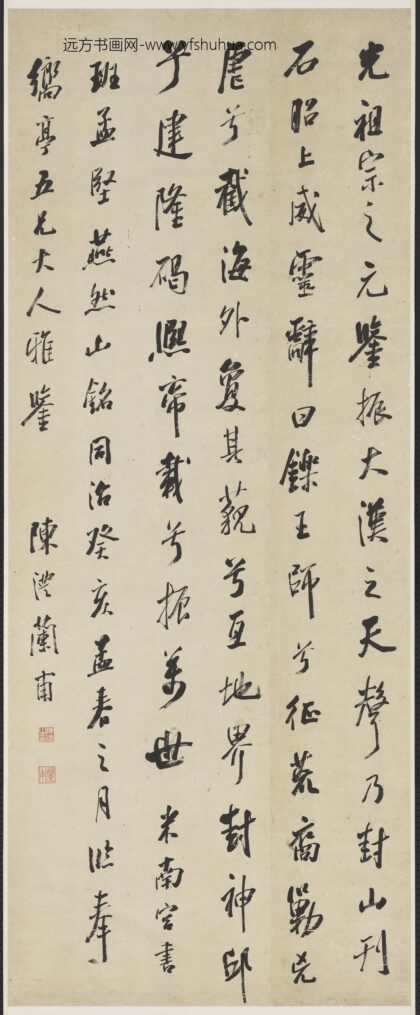 远方书画网-www.yfshuhua.com
光祖宗之元鑒振大漢之天聲乃封山刊
石昭上威靈辭曰鑠王師兮征荒裔勦兇
虐兮截海外敻其藐兮亙地界封神邱
兮建隆碣熙帝載兮振萬世 米南宮書
班孟堅燕然山銘同治癸亥孟春之月臨奉
亭五兄大人雅鑒 陳澧蘭甫